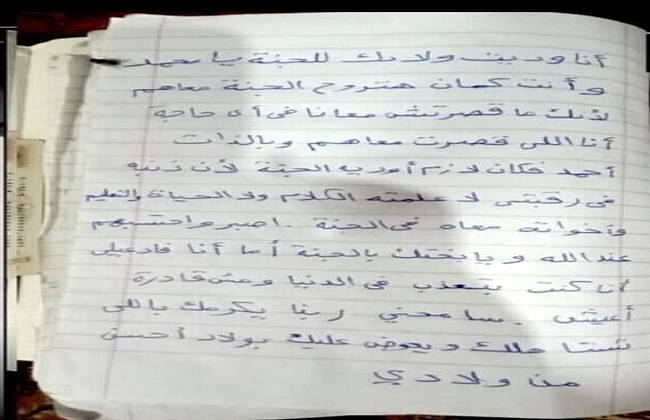 أنا وديت ولادك للجنة يا محمد
وأنت كمان هتروح الجنة معاهم
لأنك ما قصرتش معانا فى أى حاجة
أنا اللى قصرت معاهم وبالذات
أحمد فكان لازم أوديه الجنة لأن ذنبه
فى رقبتى لا علمته الكلام ولا الحياة والتعليم
وأخواته معاه فى الجنة . اصبر واحتسبهم
عند الله و يا بختك بالجنة أما أنا فادعيلى
أنا كنت بتعذب فى الدنيا ومش قادرة
أعيش . سامحني ربنا يكرمك باللى
تستاهلك ويعوض عليك بولاد أحسن
من ولادي